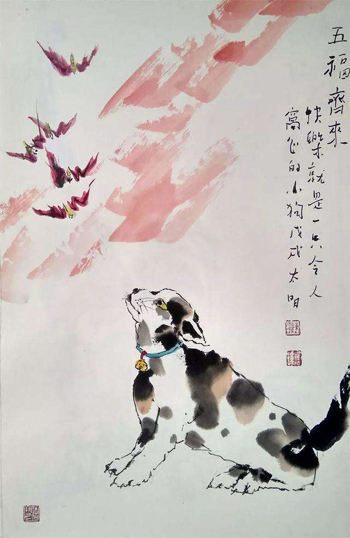 五福齊來
快樂就是一只令人
窩心的小狗戊戌太明